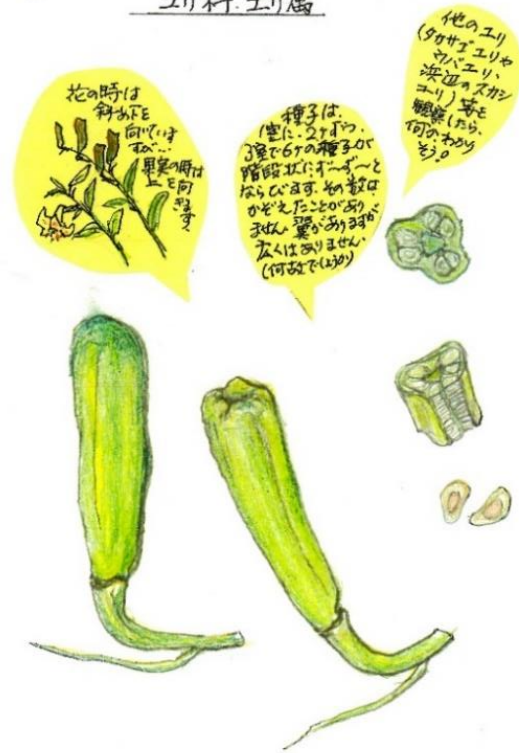 ユリ科 ユリ属
花の時は
斜め下を
向いていま
すが…
果実の時は
上を向
きます。
種子は、
1室に、2ヶずつ、
3室で6ヶの種子が
階段状にず〜ず〜と
ならびます。その数は
かぞえたことがあり
ません。翼がありますが
広くはありません。
(何故でしょうか)
他のユリ
(タカサゴユリや
ウバユリ、
浜辺のスカシ
ユリ)等を
観察したら、
何かわかり
そう。